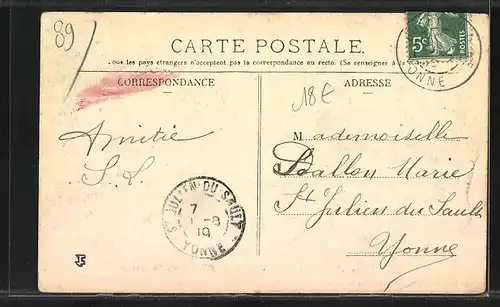 89
CARTE POSTALE
Tous les pays étrangers n'acceptent pas la correspondance au recto. (Se renseigner à la
CORRESPONDANCE
ADRESSE
5c
POSTES
YONNE
18€
Amitie
S. L.
Mademoiselle
Ballon Marie
St Julien du Sault
Yonne
St JULIEN-DU-SAULT
7
1 -8
10
YONNE